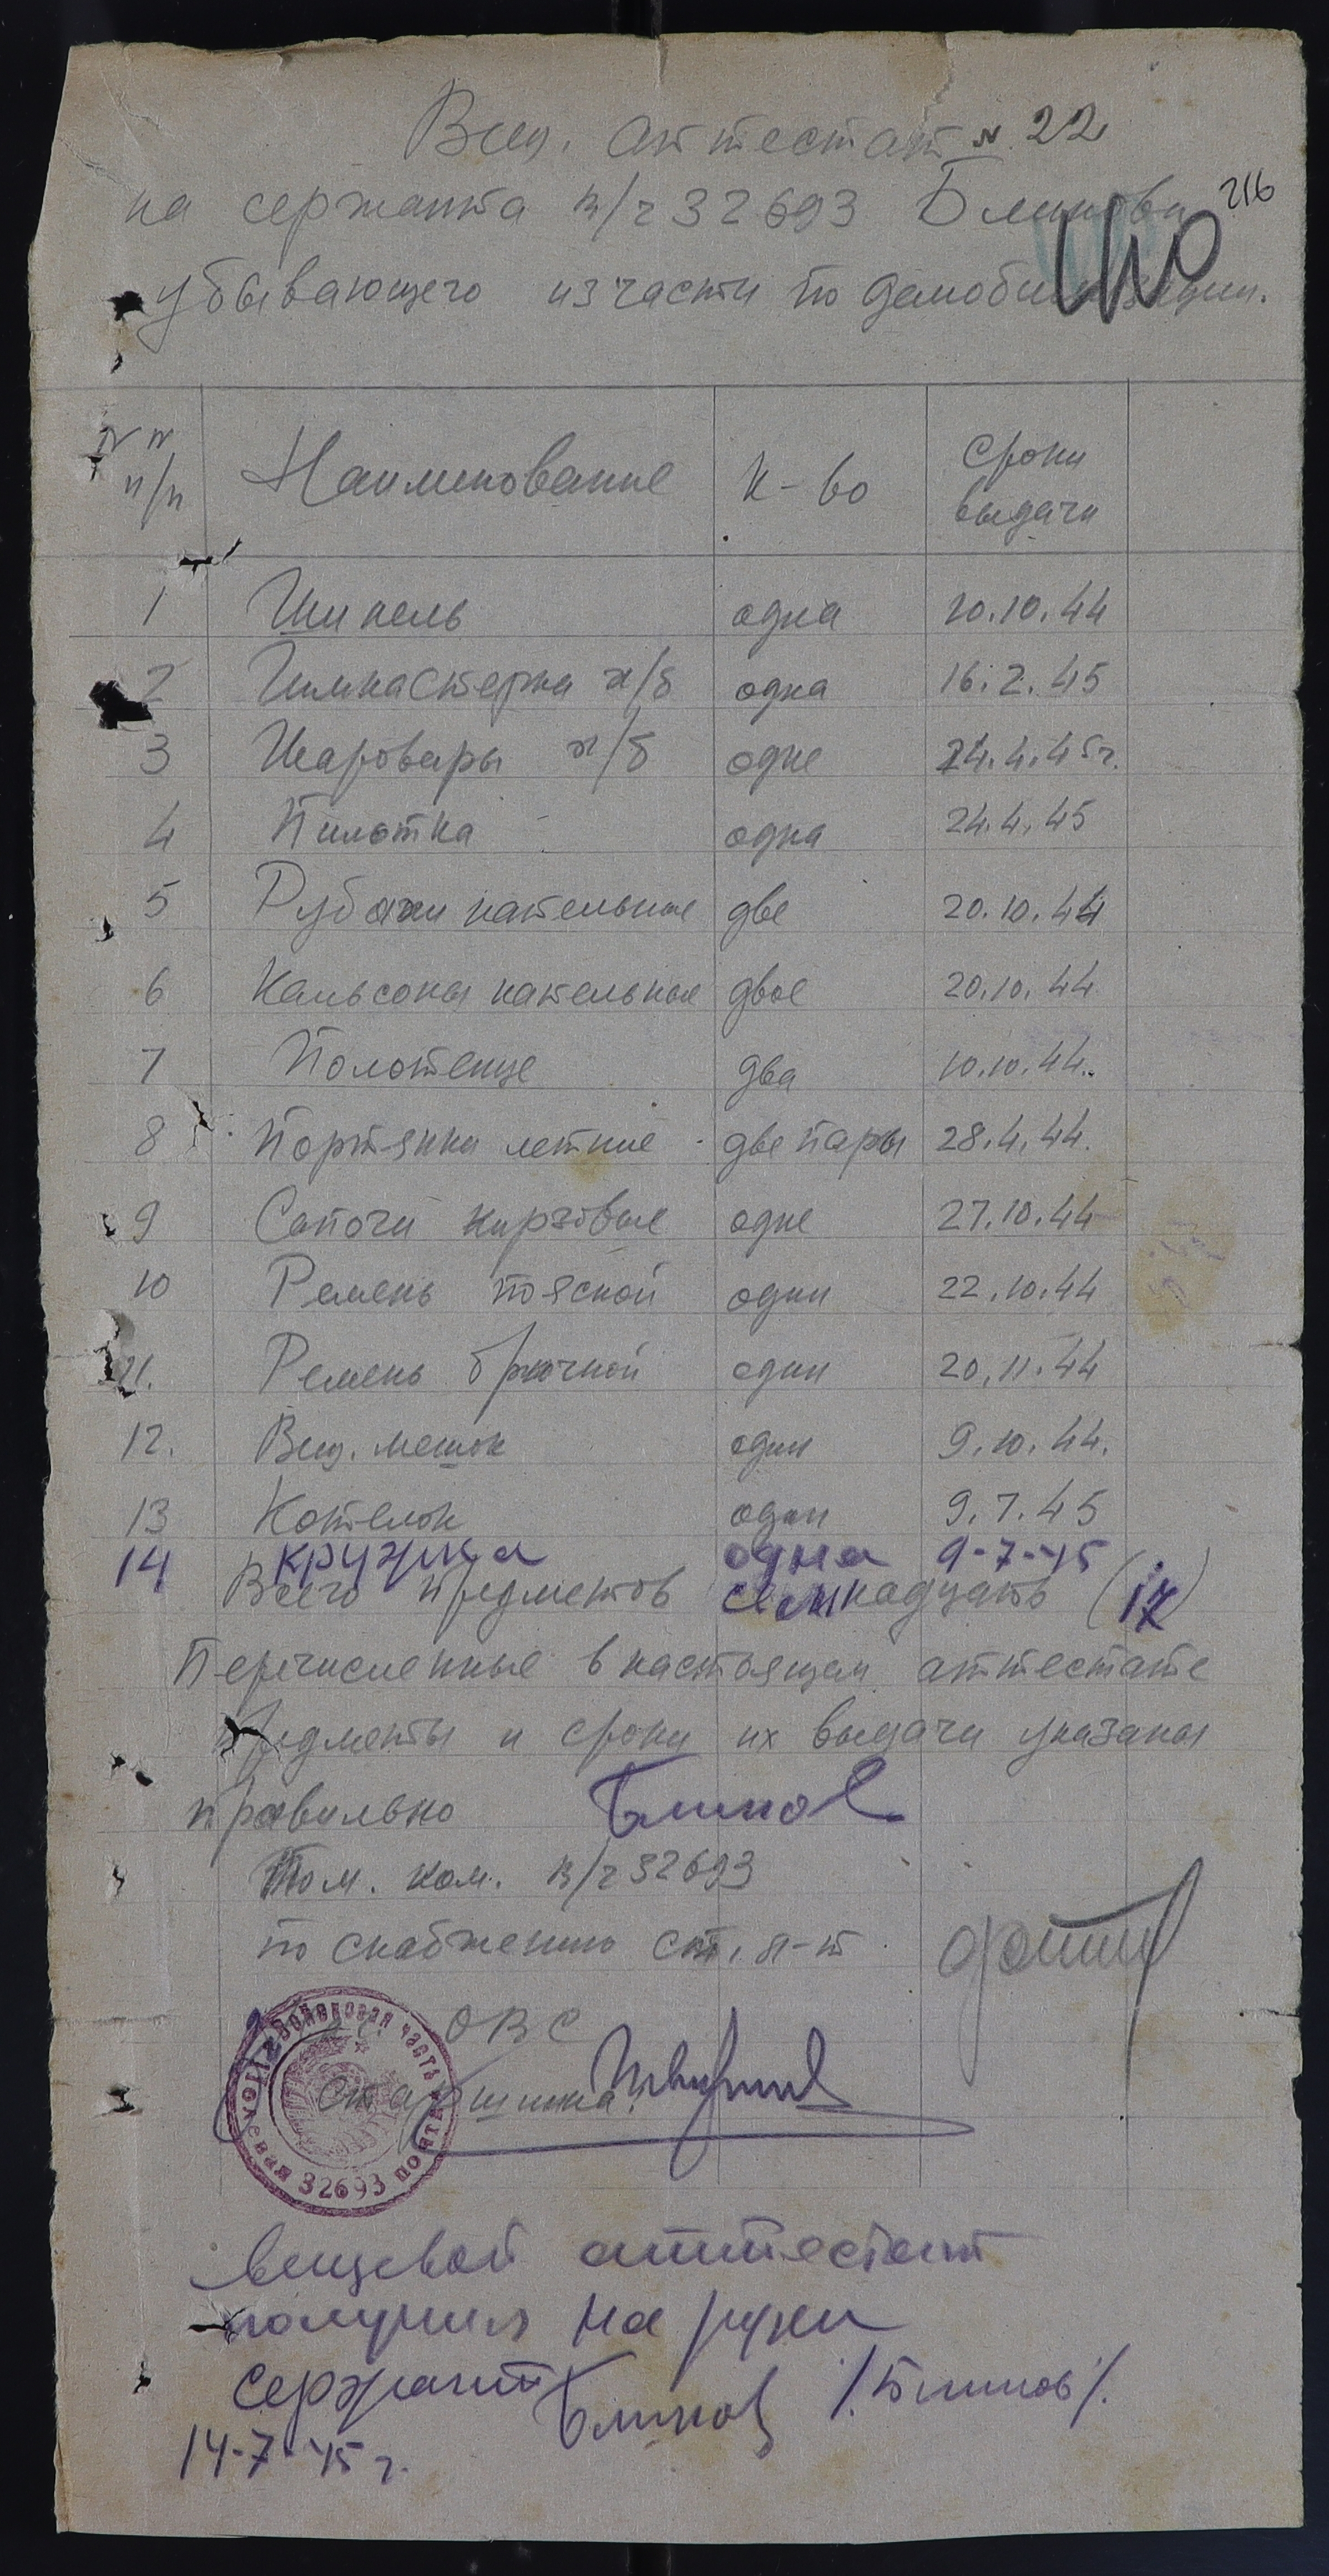 Вещ. аттестат № 22
216
на сержанта в/ч 32693 Блинова
110
убывающего из части по демобилизации.
№ №
п/п
Наименование
к-во
Сроки
выдачи
1 Шинель одна 20.10.44
2 Гимнастерка х/б одна 16.2.45
3 Шаровары х/б одне 24.4.45г.
4 Пилотка одна 24.4.45
5 Рубахи нательные две 20.10.44
6 Кальсоны нательные двое 20.10.44
7 Полотенце два 10.10.44.
8 Портянки летние две пары 28.4.44.
9 Сапоги кирзовые одне 27.10.44
10 Ремень поясной один 22.10.44
11. Ремень брючной один 20.11.44
12. Вещ. мешок один 9.10.44.
13 Котелок один 9.7.45
14 кружка одна 9-7-45
Всего предметов семнадцать (17)
Перечисленные в настоящем аттестате
предметы и сроки их выдачи указаны
правильно Блинов
Пом. ком. в/ч 32693
по снабжению ст. л-т
ОВС
старшина
Войсковая часть
полевая почта
32693
вещевой аттестат
получил на руки
сержант Блинов /Блинов/.
14-7-45 г.